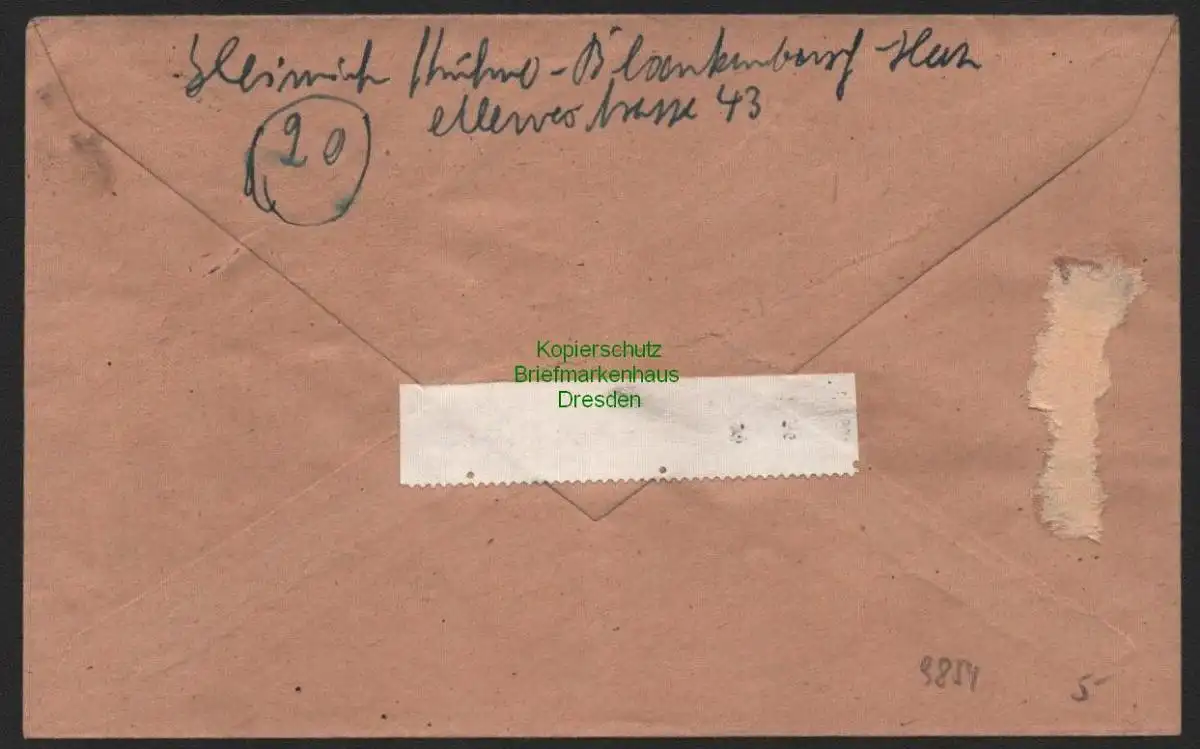 Heinrich Kühne - Blankenburg - Harz
strasse 43
20
Kopierschutz
Briefmarkenhaus
Dresden
9854
5-